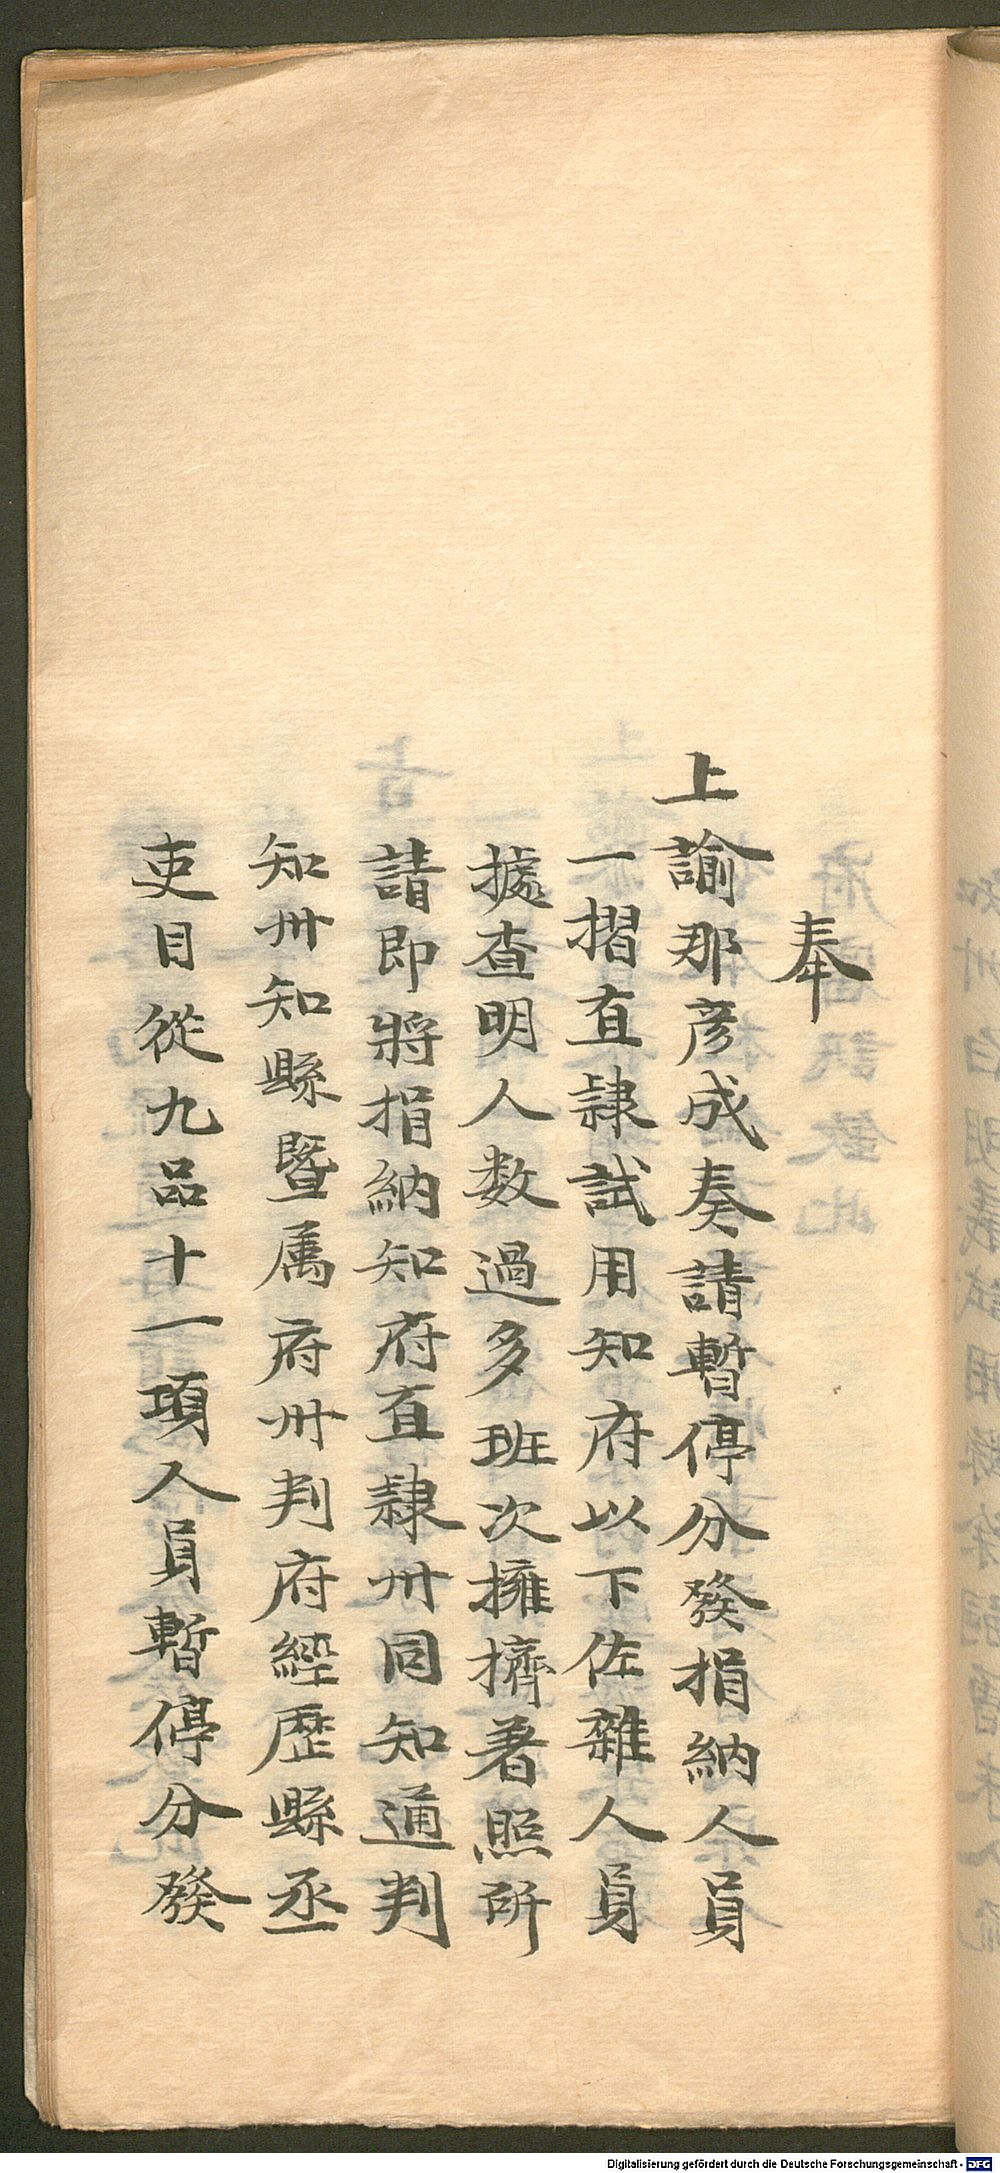 奉
上諭那彥成奏請暫停分發捐納人員
一摺直隸試用知府以下佐雜人員
據查明人数過多班次擁擠著照所
請即將捐納知府直隸州同知通判
知州知縣暨属府州判府經歷縣丞
吏目從九品十一項人員暫停分發
Digitalisierung gefördert durch die Deutsche Forschungsgemeinschaft - DFG